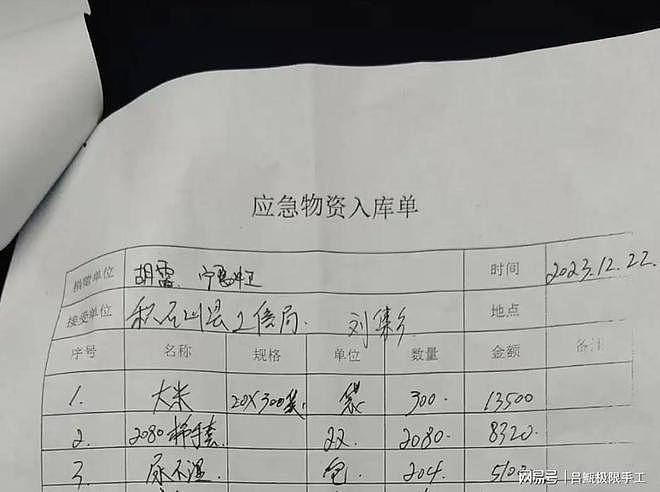 应急物资入库单
捐赠单位 胡雷、宁 时间 2023.12.22.
接受单位 积石山县工信局. 刘集乡 地点
序号 名称 规格 单位 数量 金额 备注
1. 大米 20X300袋. 袋 300. 13500
2. 2080 手套 22. 2080. 8320.
3. 尿不湿 包 204.
网易号 | 吕甑极限手工